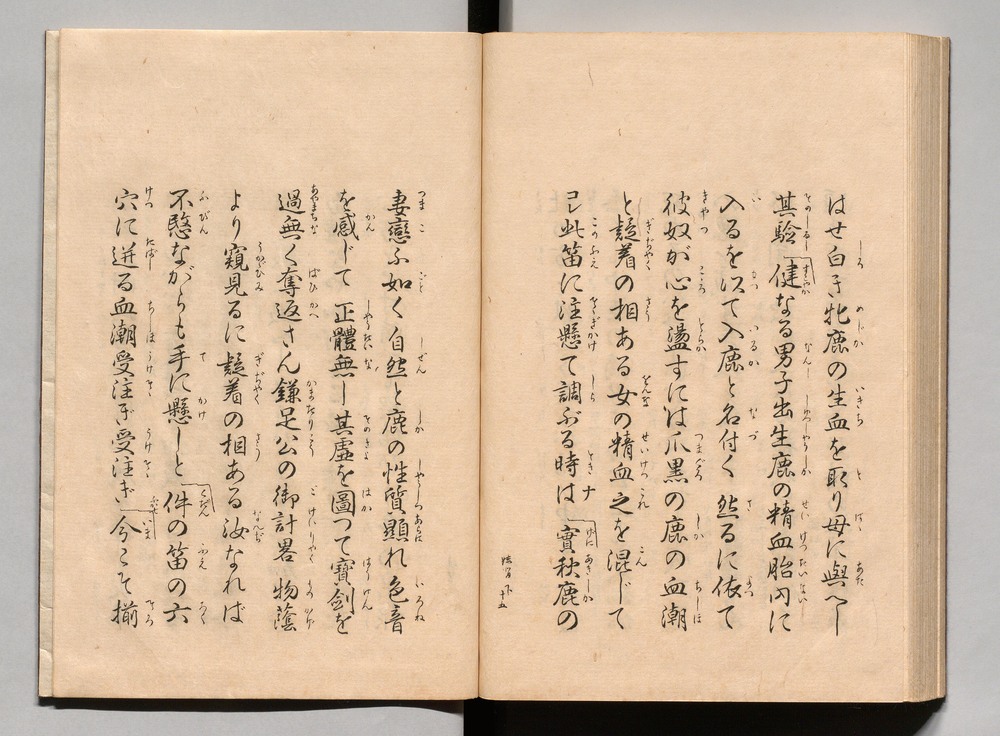 はせ白き牝鹿の生血を取り母に與へし
其驗健なる男子出生鹿の精血胎内に
入るを以て入鹿と名付く然るに依て
彼奴が心を盪すには爪黒の鹿の血潮
と疑着の相ある女の精血之を混じて
此笛に注懸て調ぶる時はナ實秋鹿の
妻戀ふ如く自然と鹿の性質顯れ色音
を感じて正體無し其虚を圖つて寶劍を
過無く奪返さん鎌足公の御計畧物蔭
より窺見るに疑着の相ある汝なれば
不愍ながらも手に懸しと件の笛の六
穴に迸る血潮受注ぎ受注ぎ今こそ揃